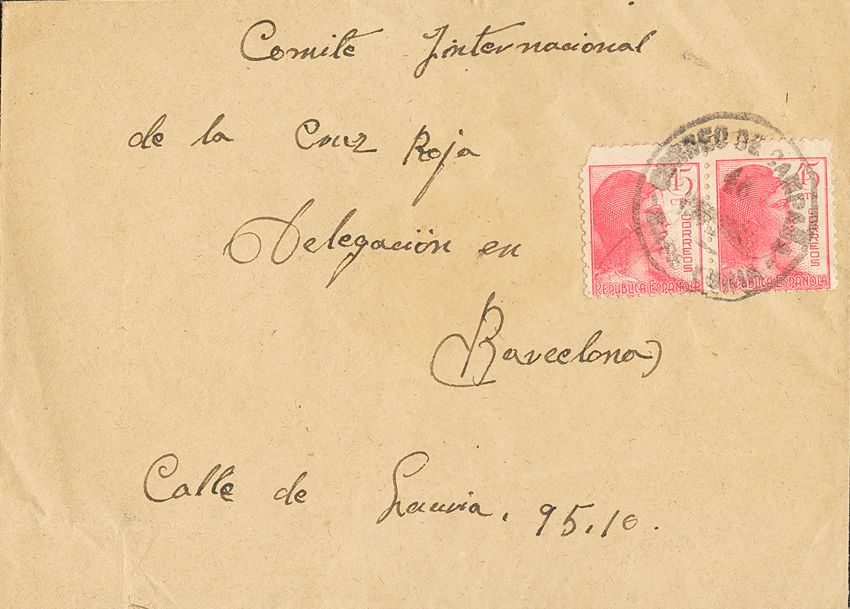 Comite Internacional
de la Cruz Roja
Delegación en
Barcelona
Calle de Lauria, 95, 1º.
CORREO DE CAMPAÑA
15
CTS
CORREOS
REPUBLICA ESPAÑOLA
15
CTS
CORREOS
REPUBLICA ESPAÑOLA